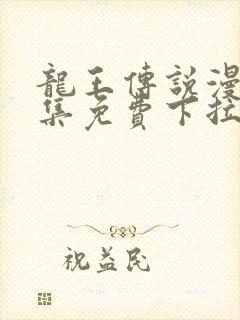 龍王傳說漫
集免費下拉
祝益民